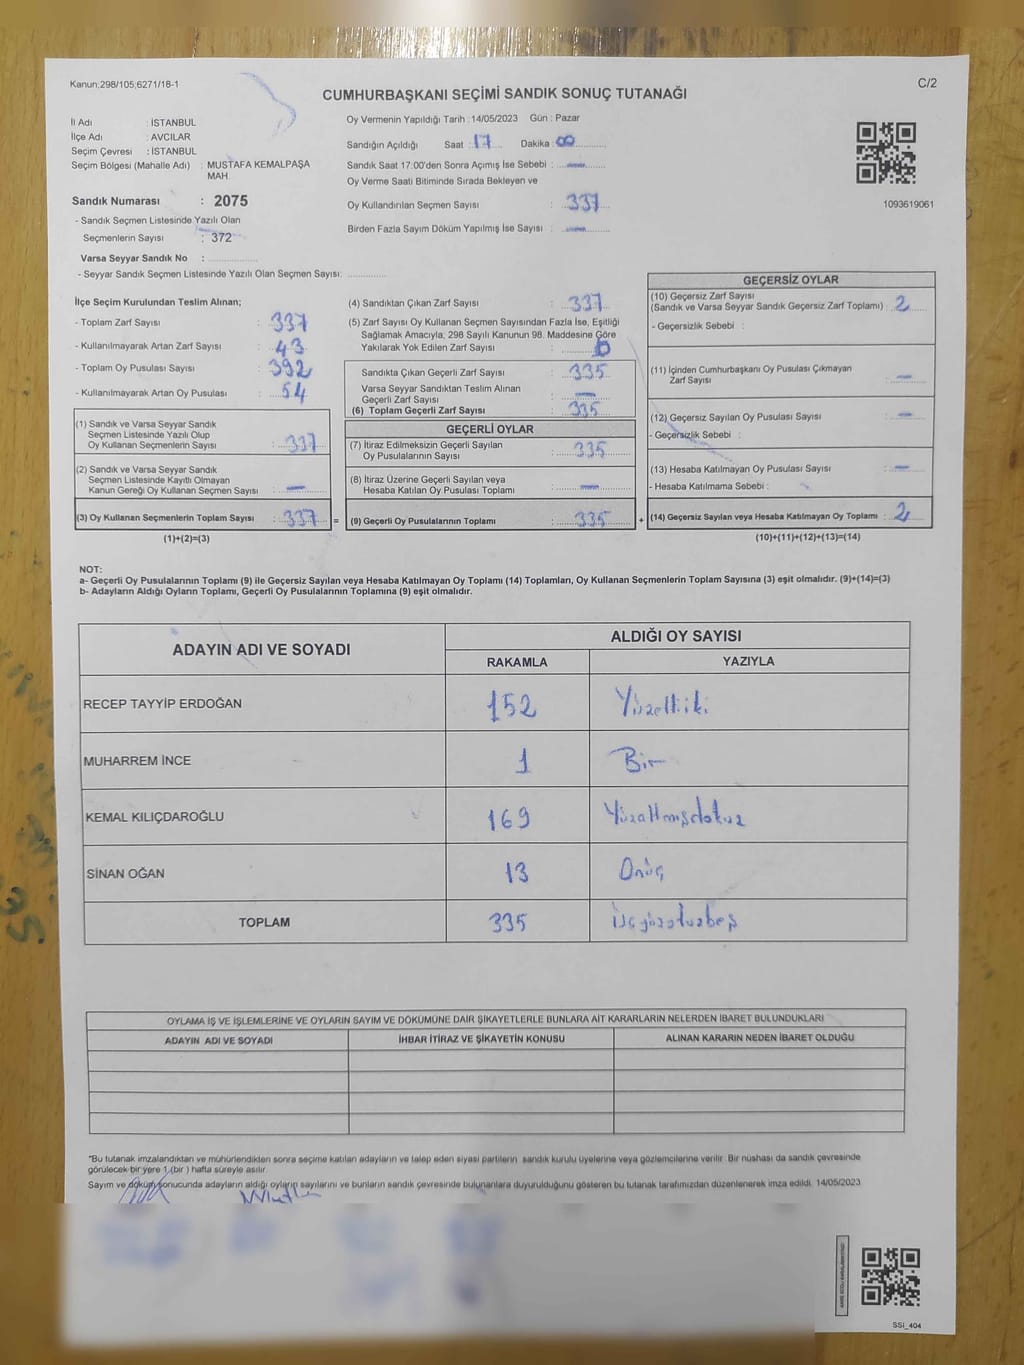 Kanun;298/105;6271/18-1
C/2
CUMHURBAŞKANI SEÇİMİ SANDIK SONUÇ TUTANAĞI
İl Adı : İSTANBUL
İlçe Adı : AVCILAR
Seçim Çevresi : İSTANBUL
Seçim Bölgesi (Mahalle Adı) : MUSTAFA KEMALPAŞA MAH.
Sandık Numarası : 2075
- Sandık Seçmen Listesinde Yazılı Olan
Seçmenlerin Sayısı : 372
Varsa Seyyar Sandık No :
- Seyyar Sandık Seçmen Listesinde Yazılı Olan Seçmen Sayısı:
Oy Vermenin Yapıldığı Tarih :14/05/2023 Gün : Pazar
Sandığın Açıldığı Saat : 17 Dakika : 00
Sandık Saat 17:00'den Sonra Açımış İse Sebebi : —
Oy Verme Saati Bitiminde Sırada Bekleyen ve
Oy Kullandırılan Seçmen Sayısı : 337
Birden Fazla Sayım Döküm Yapılmış İse Sayısı : —
1093619061
İlçe Seçim Kurulundan Teslim Alınan;
- Toplam Zarf Sayısı : 337
- Kullanılmayarak Artan Zarf Sayısı : 43
- Toplam Oy Pusulası Sayısı : 392
- Kullanılmayarak Artan Oy Pusulası : 54
(1) Sandık ve Varsa Seyyar Sandık
Seçmen Listesinde Yazılı Olup
Oy Kullanan Seçmenlerin Sayısı : 337
(2) Sandık ve Varsa Seyyar Sandık
Seçmen Listesinde Kayıtlı Olmayan
Kanun Gereği Oy Kullanan Seçmen Sayısı : —
(3) Oy Kullanan Seçmenlerin Toplam Sayısı : 337 =
(1)+(2)=(3)
(4) Sandıktan Çıkan Zarf Sayısı : 337
(5) Zarf Sayısı Oy Kullanan Seçmen Sayısından Fazla İse, Eşitliği
Sağlamak Amacıyla; 298 Sayılı Kanunun 98. Maddesine Göre
Yakılarak Yok Edilen Zarf Sayısı : 0
Sandıkta Çıkan Geçerli Zarf Sayısı : 335
Varsa Seyyar Sandıktan Teslim Alınan
Geçerli Zarf Sayısı : —
(6) Toplam Geçerli Zarf Sayısı : 335
GEÇERLİ OYLAR
(7) İtiraz Edilmeksizin Geçerli Sayılan
Oy Pusulalarının Sayısı : 335
(8) İtiraz Üzerine Geçerli Sayılan veya
Hesaba Katılan Oy Pusulası Toplamı : —
(9) Geçerli Oy Pusulalarının Toplamı : 335 +
GEÇERSİZ OYLAR
(10) Geçersiz Zarf Sayısı
(Sandık ve Varsa Seyyar Sandık Geçersiz Zarf Toplamı) : 2
- Geçersizlik Sebebi :
(11) İçinden Cumhurbaşkanı Oy Pusulası Çıkmayan
Zarf Sayısı : —
(12) Geçersiz Sayılan Oy Pusulası Sayısı : —
- Geçersizlik Sebebi :
(13) Hesaba Katılmayan Oy Pusulası Sayısı : —
- Hesaba Katılmama Sebebi :
(14) Geçersiz Sayılan veya Hesaba Katılmayan Oy Toplamı : 2
(10)+(11)+(12)+(13)=(14)
NOT:
a- Geçerli Oy Pusulalarının Toplamı (9) ile Geçersiz Sayılan veya Hesaba Katılmayan Oy Toplamı (14) Toplamları, Oy Kullanan Seçmenlerin Toplam Sayısına (3) eşit olmalıdır. (9)+(14)=(3)
b- Adayların Aldığı Oyların Toplamı, Geçerli Oy Pusulalarının Toplamına (9) eşit olmalıdır.
ADAYIN ADI VE SOYADI ALDIĞI OY SAYISI
RAKAMLA YAZIYLA
RECEP TAYYİP ERDOĞAN 152 Yüzelliiki
MUHARREM İNCE 1 Bir
KEMAL KILIÇDAROĞLU 169 Yüzaltmışdokuz
SİNAN OĞAN 13 Onüç
TOPLAM 335 üçyüzotuzbeş
OYLAMA İŞ VE İŞLEMLERİNE VE OYLARIN SAYIM VE DÖKÜMÜNE DAİR ŞİKAYETLERLE BUNLARA AİT KARARLARIN NELERDEN İBARET BULUNDUKLARI
ADAYIN ADI VE SOYADI İHBAR İTİRAZ VE ŞİKAYETİN KONUSU ALINAN KARARIN NEDEN İBARET OLDUĞU
"Bu tutanak imzalandıktan ve mühürlendikten sonra seçime katılan adayların ve talep eden siyasi partilerin sandık kurulu üyelerine veya gözlemcilerine verilir. Bir nüshası da sandık çevresinde
görülecek bir yere 1 (bir ) hafta süreyle asılır.
Sayım ve döküm sonucunda adayların aldığı oyların sayılarını ve bunların sandık çevresinde bulunanlara duyurulduğunu gösteren bu tutanak tarafımızdan düzenlenerek imza edildi. 14/05/2023
SSİ_404